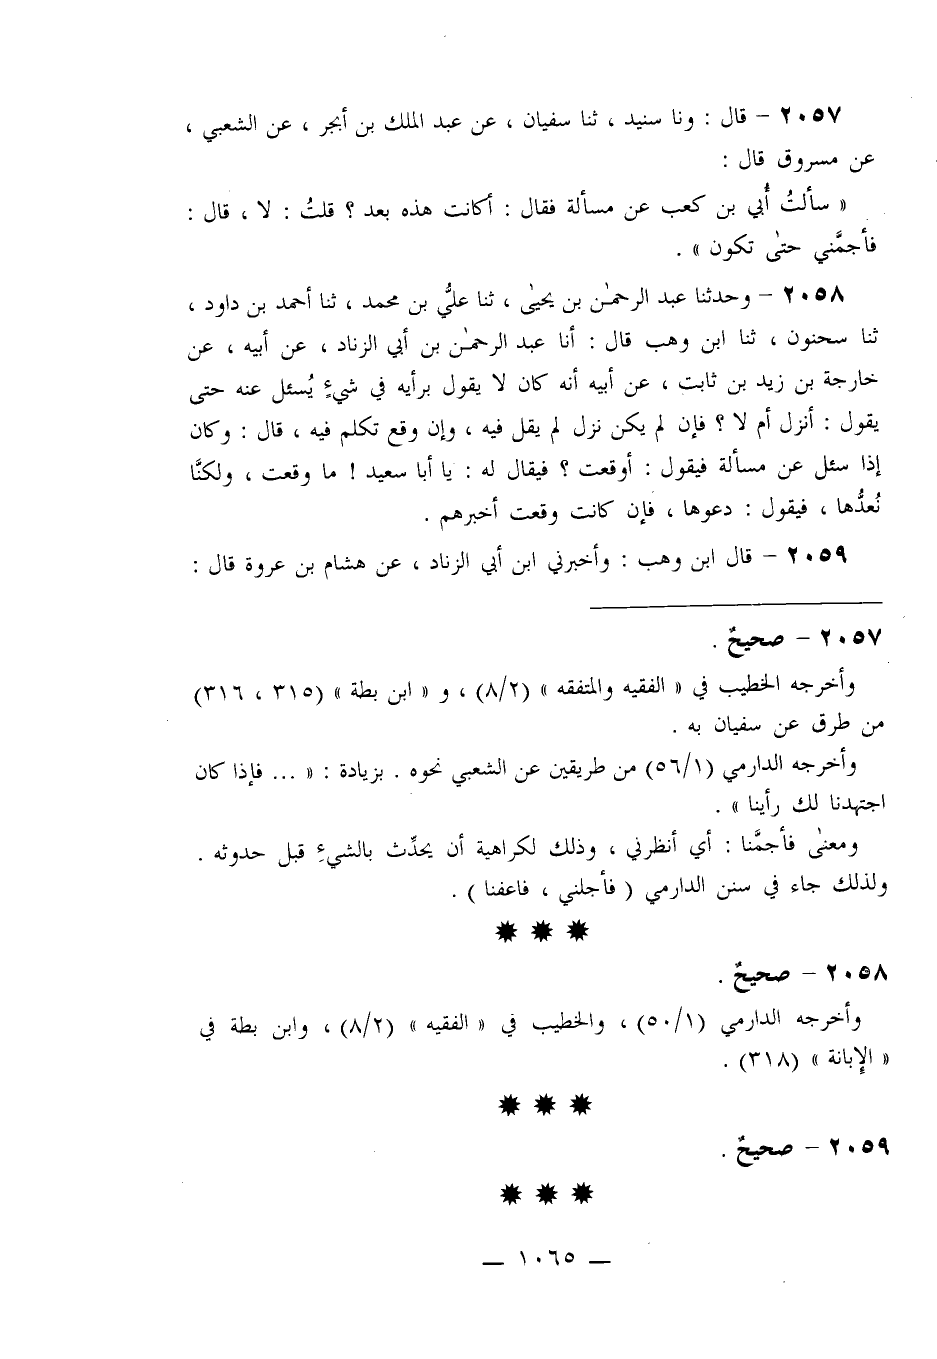 ٢٠٥٧ – قال : ونا سنيد ، ثنا سفيان ، عن عبد الملك بن أبجر ، عن الشعبي ،
عن مسروق قال :
« سألتُ أُبي بن كعب عن مسألة فقال : أكانت هذه بعد ؟ قلتُ : لا ، قال :
فأجمَّني حتىٰ تكون » .
٢٠٥٨ – وحدثنا عبد الرحمٰن بن يحيىٰ ، ثنا عليُّ بن محمد ، ثنا أحمد بن داود ،
ثنا سحنون ، ثنا ابن وهب قال : أنا عبد الرحمٰن بن أبي الزناد ، عن أبيه ، عن
خارجة بن زيد بن ثابت ، عن أبيه أنه كان لا يقول برأيه في شيءٍ يُسئل عنه حتى
يقول : أنزل أم لا ؟ فإن لم يكن نزل لم يقل فيه ، وإن وقع تكلم فيه ، قال : وكان
إذا سئل عن مسألة فيقول : أوقعت ؟ فيقال له : يا أبا سعيد ! ما وقعت ، ولكنَّا
نُعدُّها ، فيقول : دعوها ، فإن كانت وقعت أخبرهم .
٢٠٥٩ – قال ابن وهب : وأخبرني ابن أبي الزناد ، عن هشام بن عروة قال :
٢٠٥٧ – صحيحٌ .
وأخرجه الخطيب في « الفقيه والمتفقه » (٨/٢) ، و « ابن بطة » (٣١٥ ، ٣١٦)
من طرق عن سفيان به .
وأخرجه الدارمي (٥٦/١) من طريقين عن الشعبي نحوه . بزيادة : « ... فإذا كان
اجتهدنا لك رأينا » .
ومعنىٰ فأجمَّنا : أي أنظرني ، وذلك لكراهية أن يحدِّث بالشيءِ قبل حدوثه .
ولذلك جاء في سنن الدارمي ( فأجلني ، فاعفنا ) .
٢٠٥٨ – صحيحٌ .
وأخرجه الدارمي (٥٠/١) ، والخطيب في « الفقيه » (٨/٢) ، وابن بطة في
« الإبانة » (٣١٨) .
٢٠٥٩ – صحيحٌ .
— ١٠٦٥ —